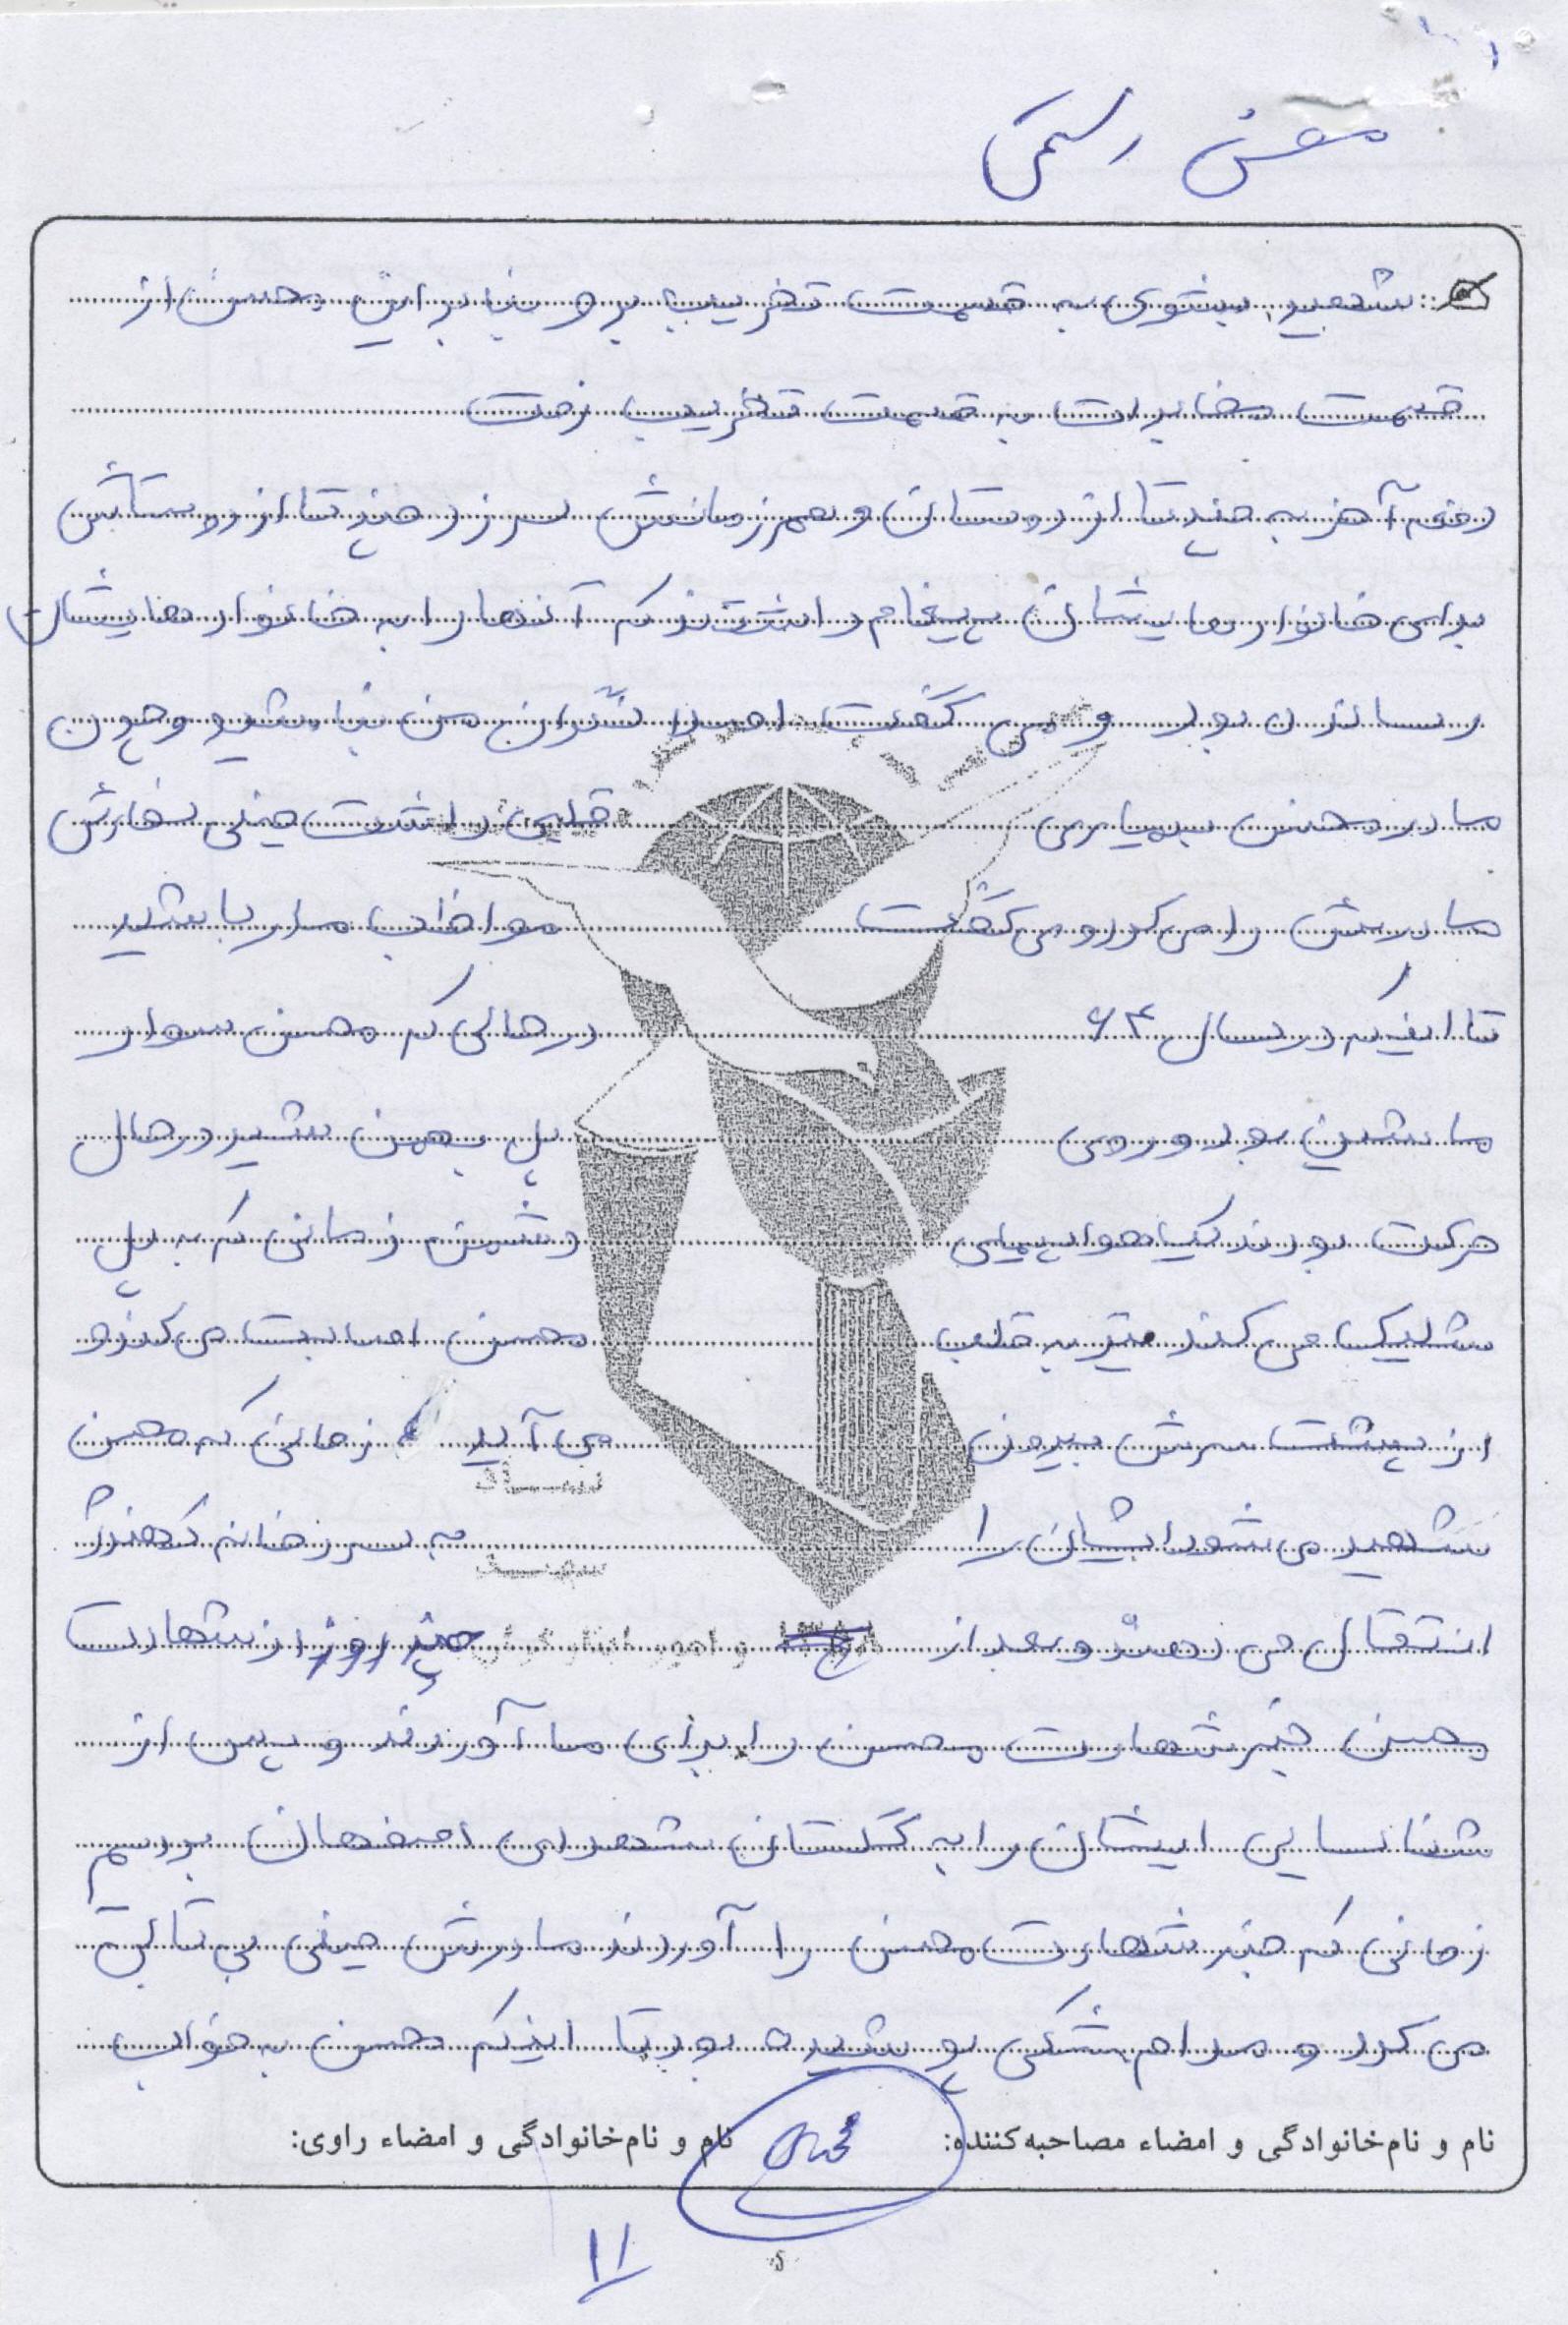 محسن رستمی
شهید بشوی به قسمت تخریب برو بنابراین محسن از
قسمت مخابرات به قسمت تخریب رفت
دفعه آخر به چند تا از دوستان و همرزمانش سر زد چند تا از دوستاش
برای خانواده هایشان پیغام داشتند که آنها را به خانواده هایشان
رسانده بود و می گفت اصلا نگران من نباشید و چون
مادر محسن بیماری قلبی داشت خیلی سفارش
مادرش را می کرد و می گفت مواظب مادر باشید
تا اینکه در سال ۶۴ در حالی که محسن سوار
ماشین بود و روی پل بهمن شیر در حال
حرکت بودند یک هواپیمای دشمن زمانی که به پل
شلیک می کند تیر به قلب محسن اصابت می کند و
از پشت سرش بیرون می آید زمانی که محسن
شهید می شود ایشان را به سردخانه کهندژ
انتقال می دهند و بعد از چند روز از شهادت
محسن خبر شهادت محسن را برای ما آوردند و پس از
شناسایی ایشان را به گلستان شهدای اصفهان بردیم
زمانی که خبر شهادت محسن را آوردند مادرش خیلی بی تابی
می کرد و مدام مشکی پوشیده بود تا اینکه محسن به خواب
نام و نام‌خانوادگی و امضاء مصاحبه‌کننده: نام و نام‌خانوادگی و امضاء راوی:
۱۱